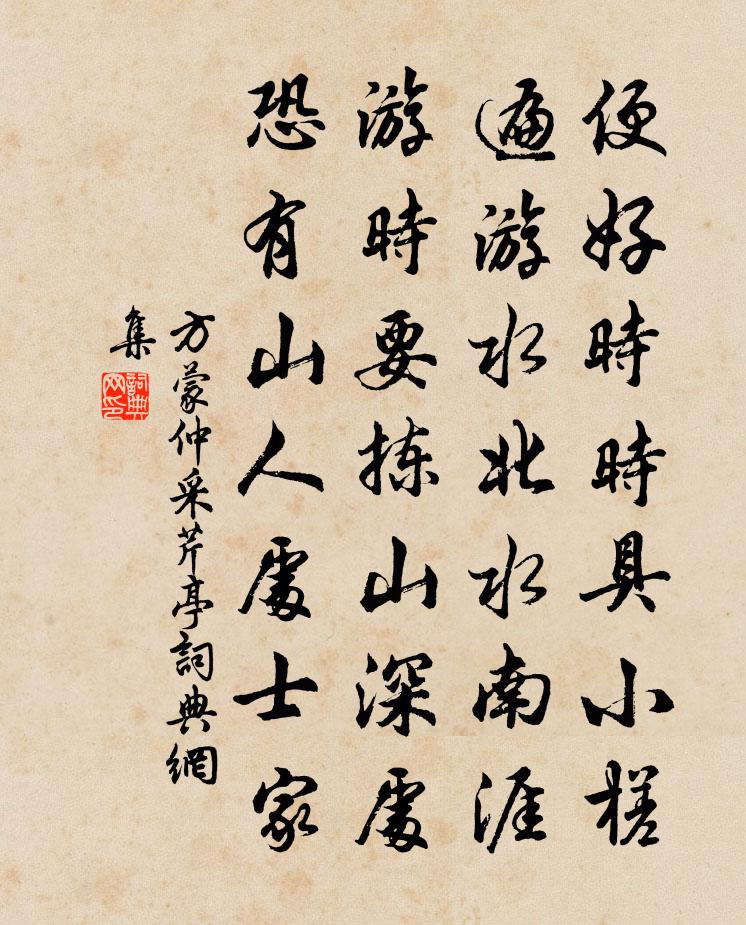 便好時時具小槎
遍游水北水南涯
游時要揀山深處
恐有山人處士家
方蒙仲采芹亭詞典網
集
詞典网印